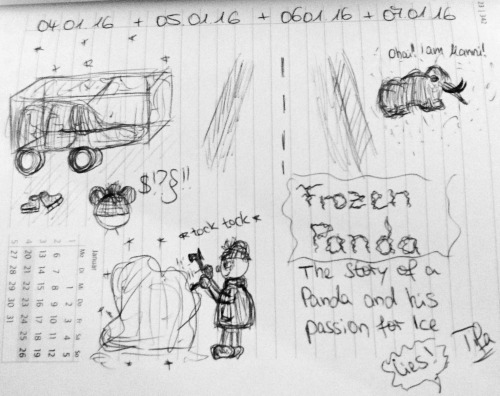 04.01.16 + 05.01.16 + 06.01.16 + 07.01.16
Oha! I am Manni!
$!?}!!
*tock tock*
Frozen
Panda
The story of a
Panda and his
passion for Ice
Lies!
Januar
Mo Di Mi Do Fr Sa So
1 1 2 3 4 5
2 6 7 8 9 10 11 12
3 13 14 15 16 17 18 19
4 20 21 22 23 24 25 26
5 27 28 29 30 31